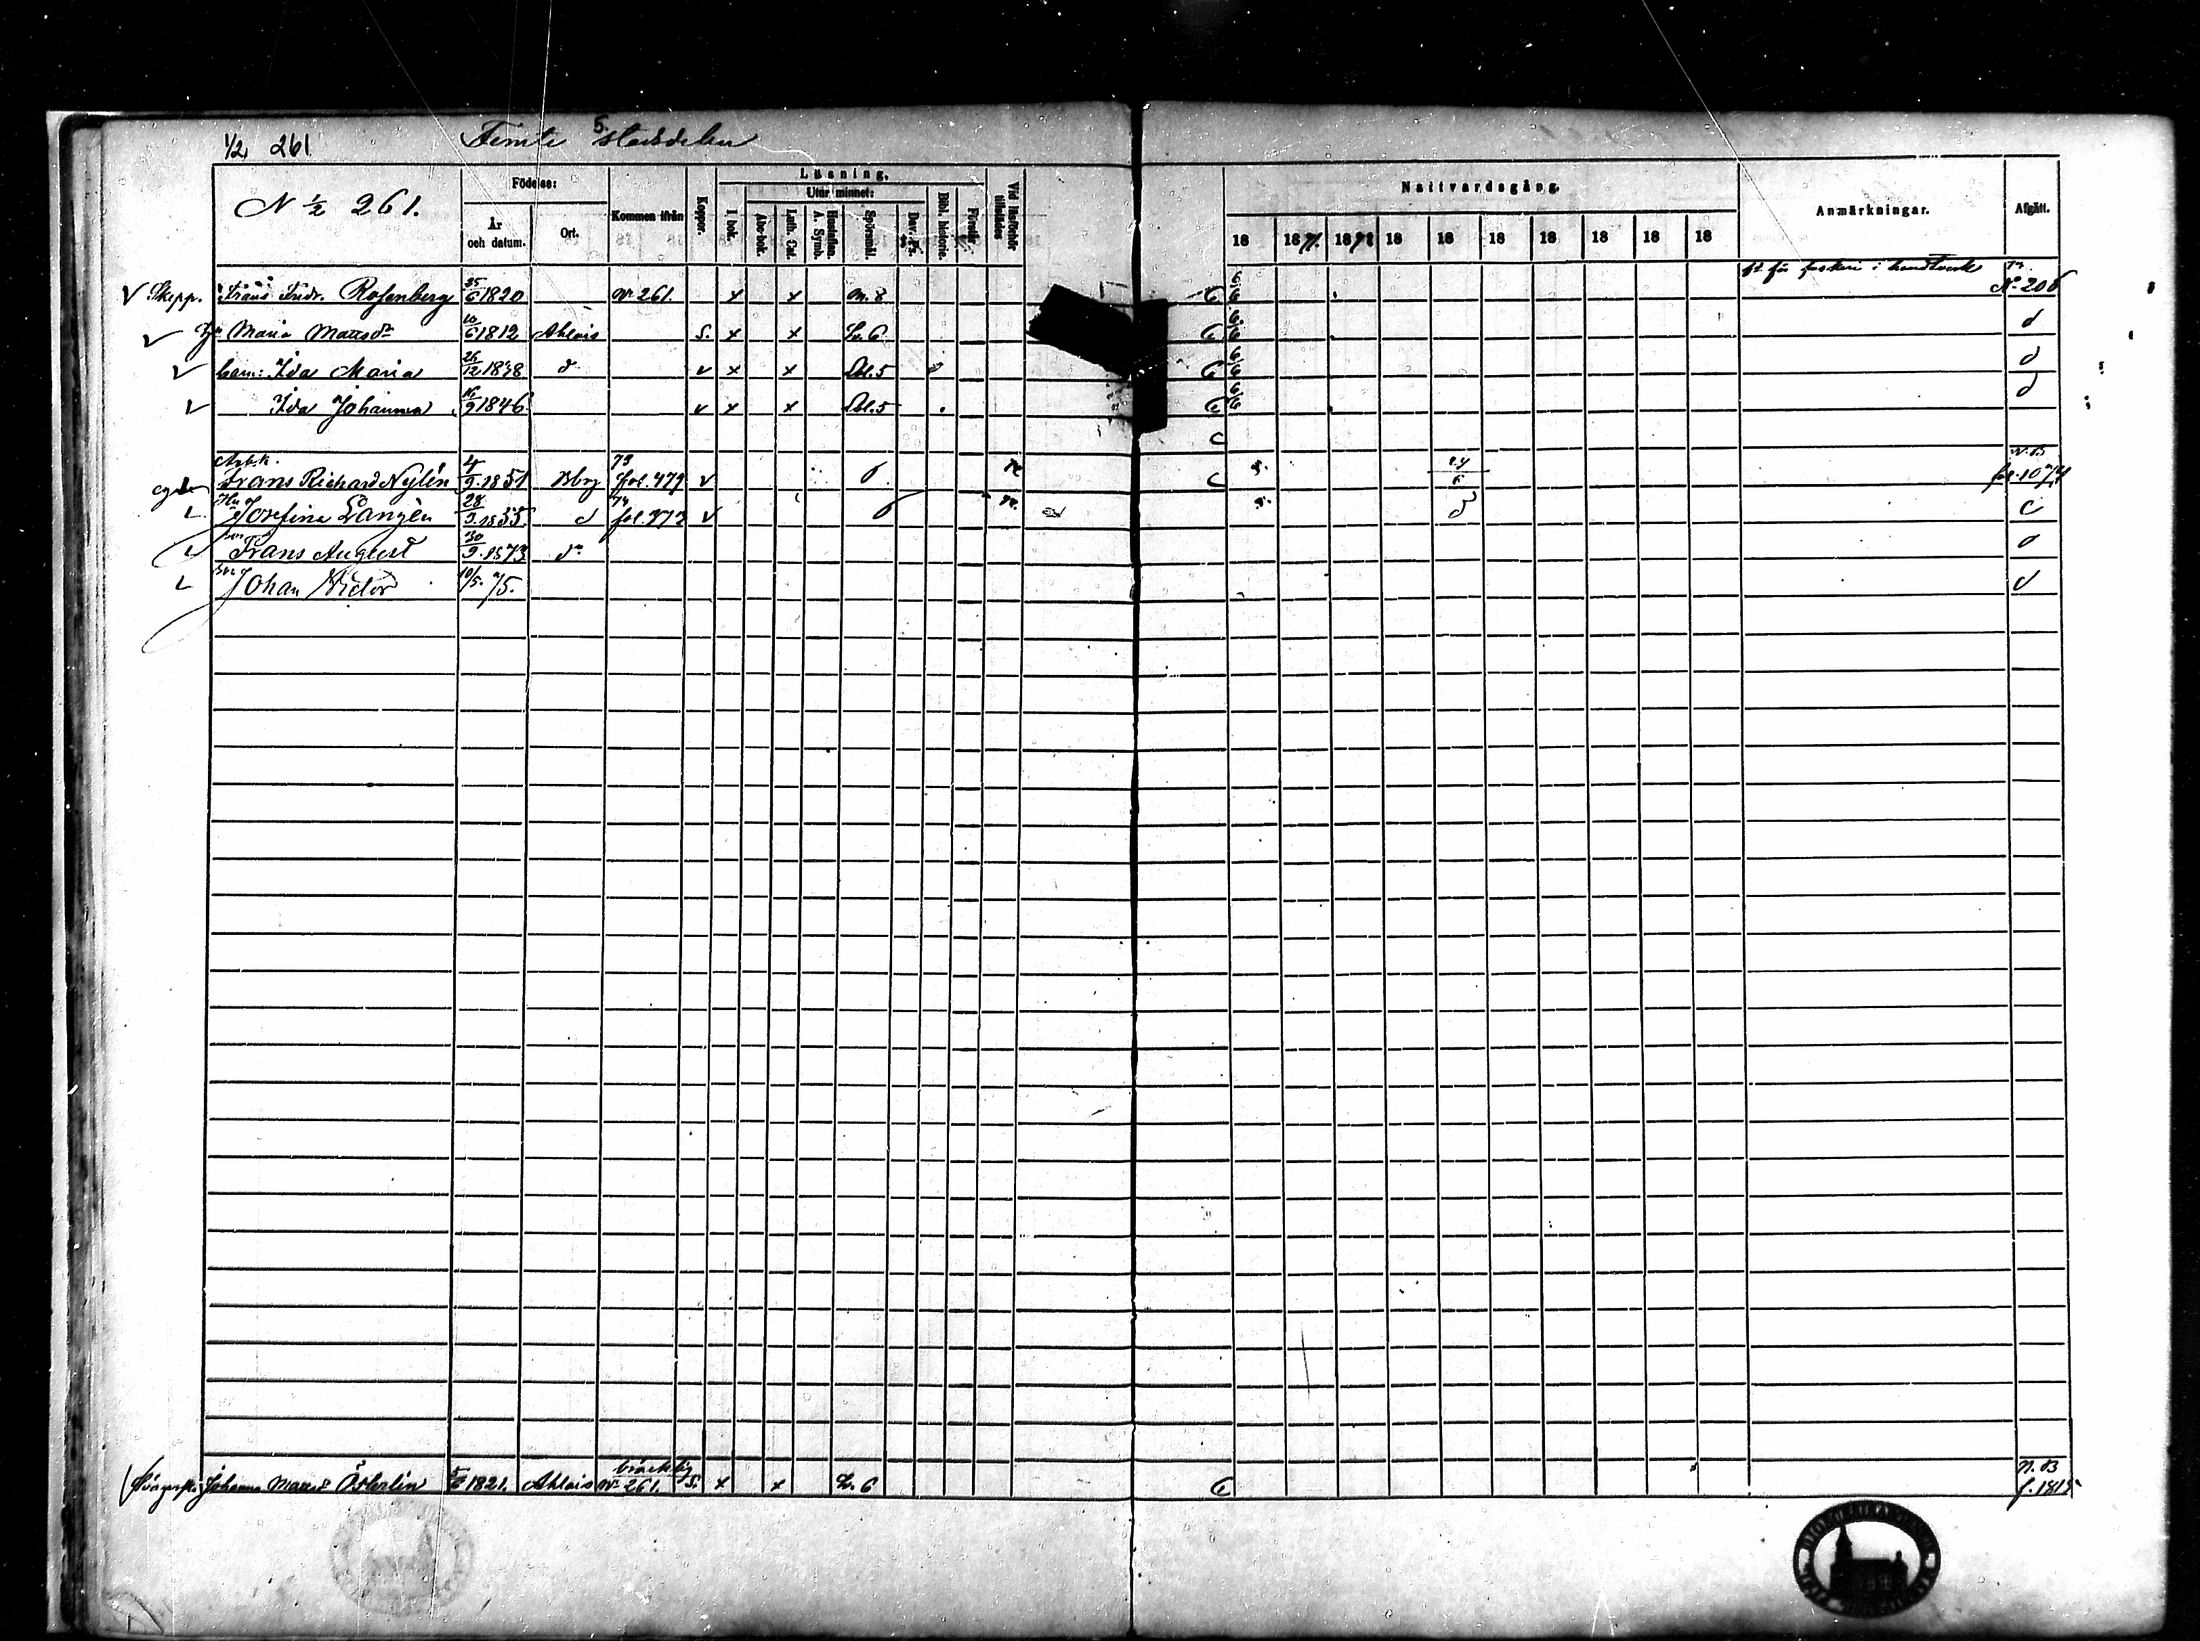 1/2 261 Femte 5. stadsdelen
N 1/2 261.
Födelse:
År och datum.
Ort.
Kommen ifrån
Koppor.
Läsning.
I bok.
Utur minnet:
Abc-bok.
Luth. Cat.
Hustaflan. A. Symb.
Spörsmål.
Dav. Ps.
Bibl. historie.
Förstår.
Vid läsförhör tillstädes
Nattvardsgång.
18 1871. 1872 18 18 18 18 18 18 18
Anmärkningar.
Afgått.
Skepp. Frans Fridr. Rosenberg 25/6 1820 No 261. x x m. 8 6/6 No 206
Hu Maria Mattsdr 10/6 1812 Ahlais S. x x Sv. 6 6/6 d
barn: Ida Maria 25/12 1838 do v x x Sbl. 5 6/6 d
Ida Johanna 16/9 1846 v x x Sbl. 5 6/6 d
Arb.k. Frans Richard Nylén 4/9 1851 Bbg 73 fol. 479 v N. B fol. 1074
Hu Josefina Langén 28/9 1855 d 74 fol. 473 v
son Frans August 30/9 1873 do
son Johan Victor 10/5 75.
Johanna Mattsdr Österlin 5/6 1821. Ahlais bräcklig No 261. S. x x Sv. 6 N. B f. 1815